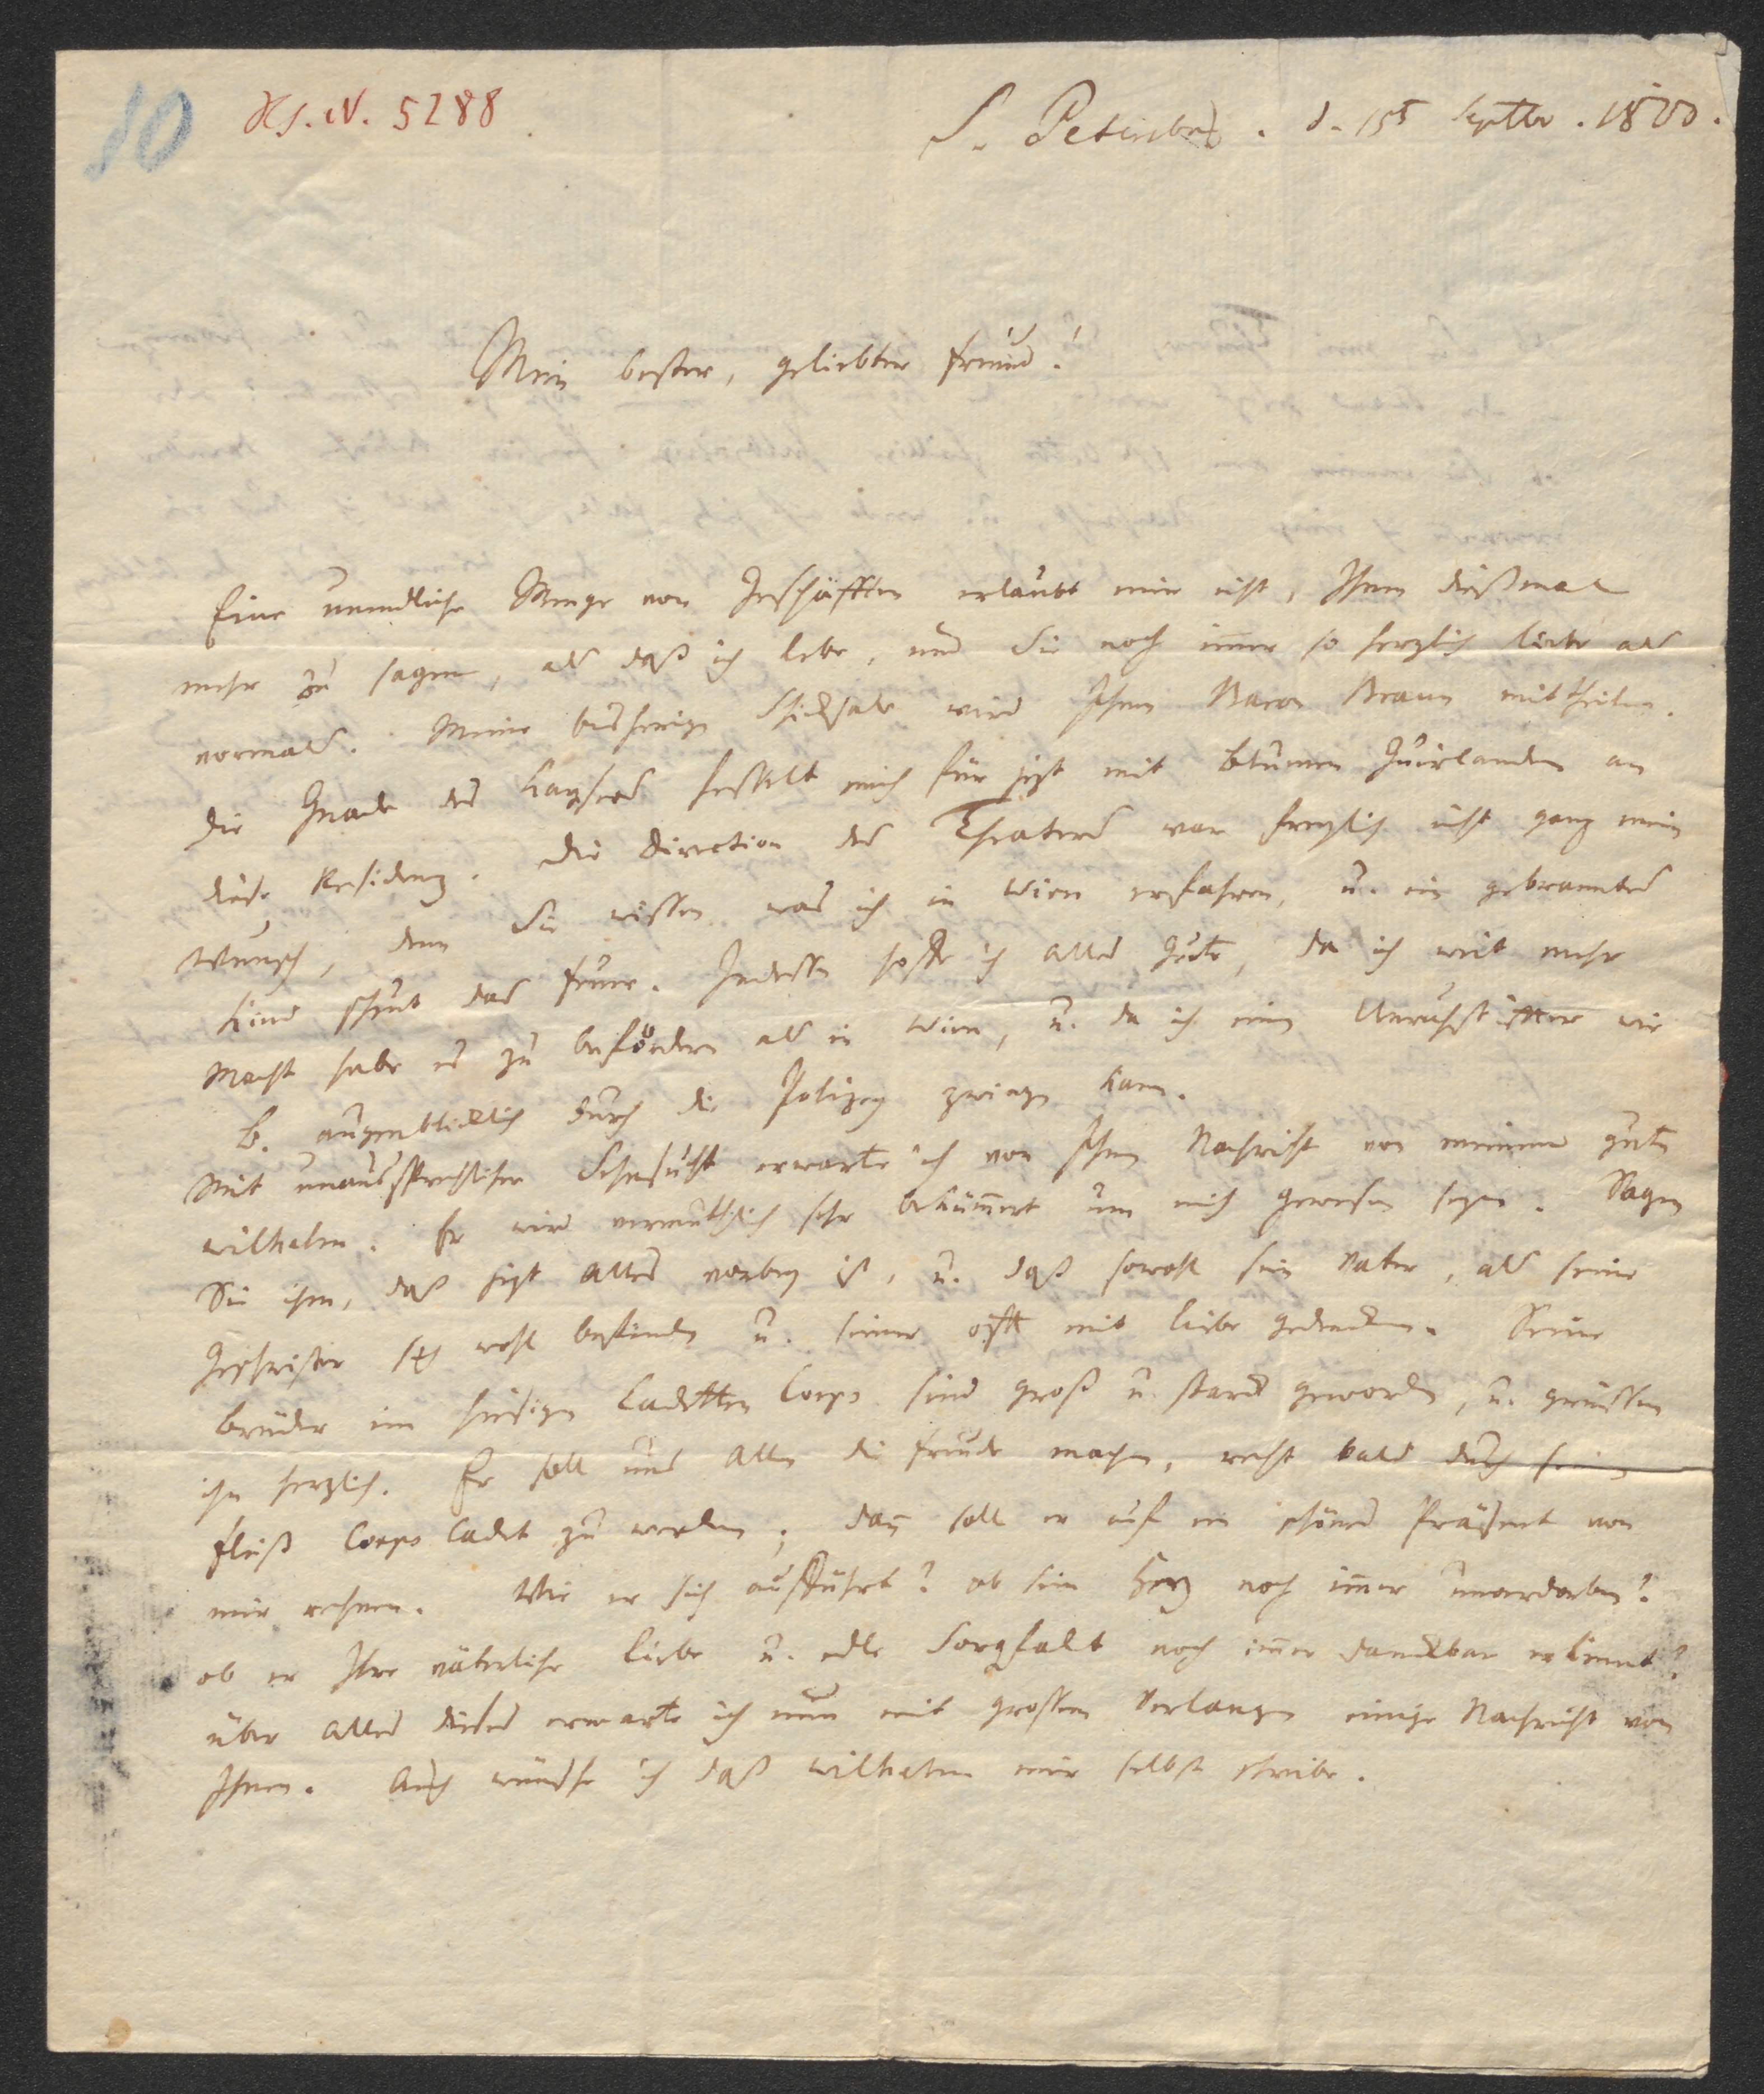 10
HS. N. 5288
S. Petersbrg. d. 15t Septbr. 1800.
Mein bester, geliebter Freund!
Eine unendliche Menge von Geschäfften erlaubt mir nicht, Ihnen dießmal
mehr zu sagen, als daß ich lebe, und Sie noch im̄er so herzlich liebe als
vormals. Meine bisherige Schicksale wird Ihnen Baron Braun mittheilen.
Die Gnade des Kaysers fesselt mich für jezt mit Blumen Guirlanden an
diese Residenz. Die Direction des Theaters war freylich nicht ganz mein
Wunsch, denn Sie wissen was ich in Wien erfahren, u. ein gebranntes
Kind scheut das Feuer. Indessen hoffe ich alles Gute, da ich weit mehr
Macht habe es zu befördern als in Wien, u. da ich einen Unruhstifter wie
B. augenblicklich durch die Polizey zwingen kann.
Mit unaussprechlicher Sehnsucht erwarte ich von Ihnen Nachricht von meinem guten
Wilhelm. Er wird vermuthlich sehr beküm̄ert um mich gewesen seyn. Sagen
Sie ihm, daß jezt alles vorbey ist, u. daß sowohl sein Vater, als seine
Geschwister sich wohl befinden u. seiner offt mit Liebe gedencken. Seine
Brüder im hiesigen Cadetten Corps sind groß u. starck geworden, u. grüssen
ihn herzlich. Er soll uns allen die Freude machen, recht bald durch seinen
Fleiß Corps Cadet zu werden; dan̄ soll er auf ein schönes Präsent von
mir rechnen. Wie er sich aufführt? ob sein Herz noch im̄er unverdorben?
ob er Ihre väterliche Liebe u. edle Sorgfalt noch im̄er danckbar erkennt?
über alles dieses erwarte ich nun mit grossem Verlangen einige Nachricht von
Ihnen. Auch wünsche ich daß Wilhelm mir selbst schreibe.